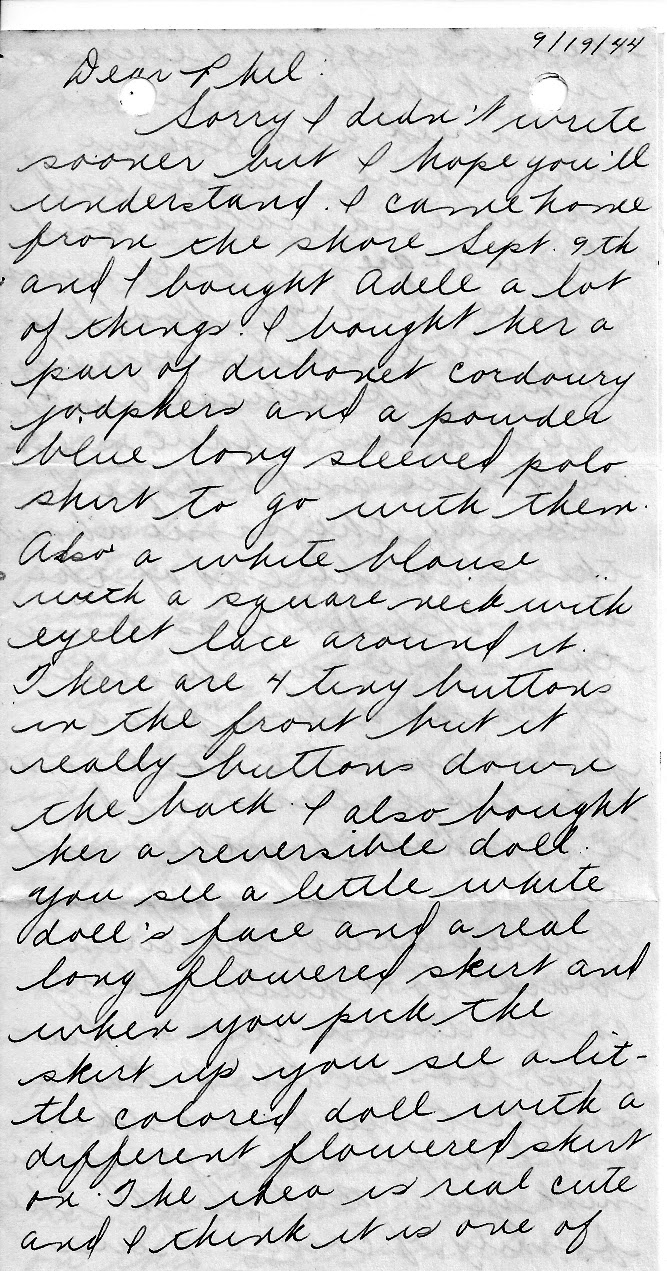 9/19/44
Dear Phil:
Sorry I didn't write
sooner but I hope you'll
understand. I came home
from the shore Sept. 9th
and I bought Adell a lot
of things. I bought her a
pair of dubonet cordoury
jodphers and a powder
blue long sleeved polo
shirt to go with them.
Also a white blouse
with a square neck with
eyelet lace around it.
There are 4 tiny buttons
in the front but it
really buttons down
the back. I also bought
her a reversible doll.
You see a little white
doll's face and a real
long flowered skirt and
when you pick the
skirt up you see a lit-
tle colored doll with a
different flowered skirt
on. The idea is real cute
and I think it is one of